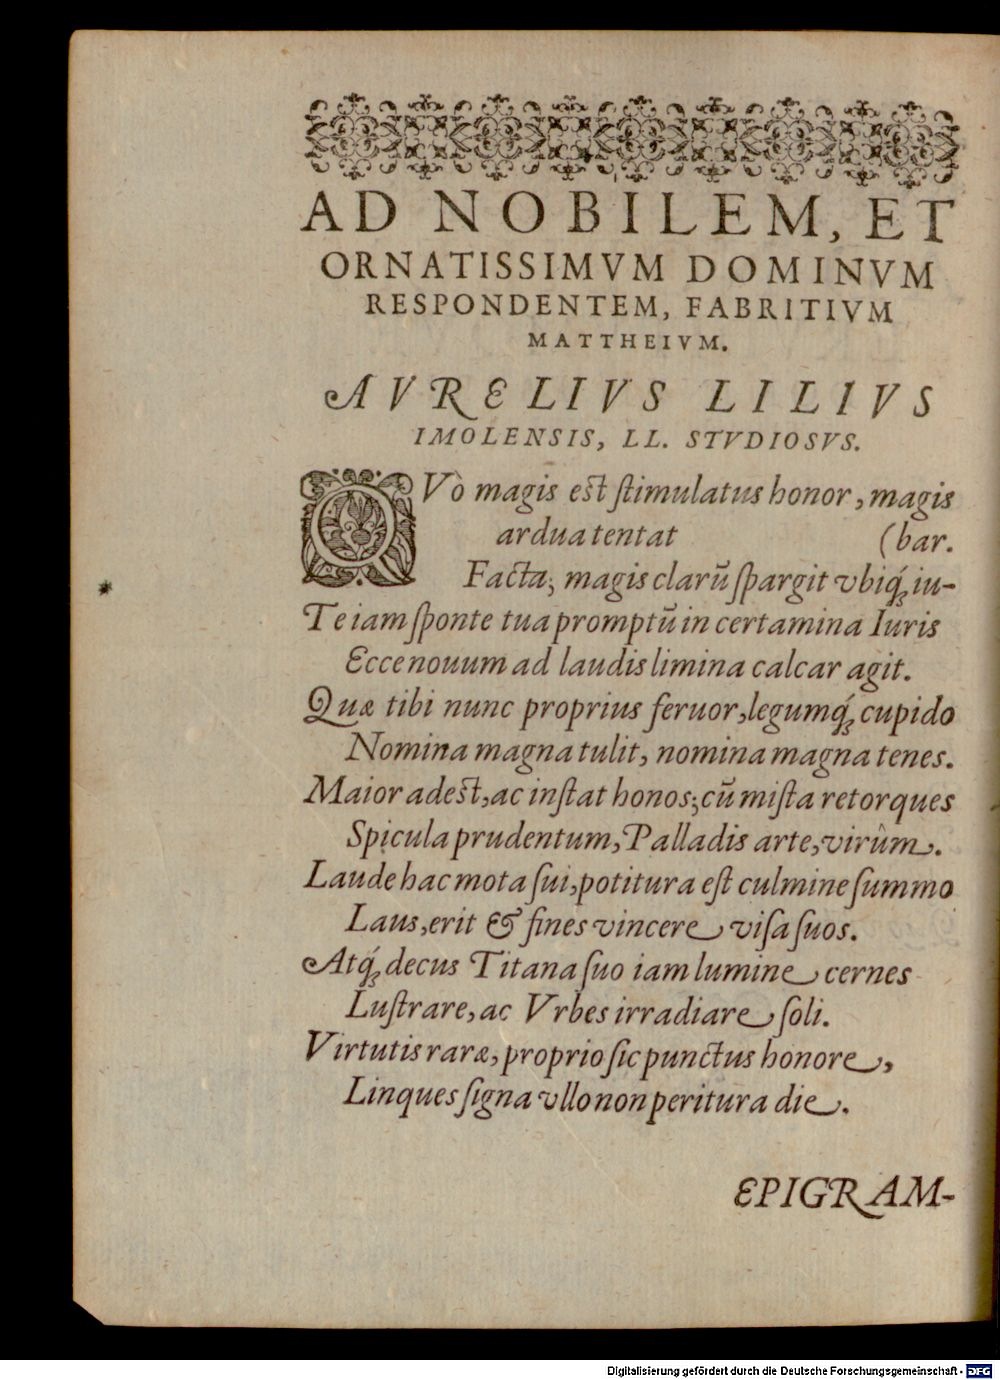 AD NOBILEM, ET
ORNATISSIMVM DOMINVM
RESPONDENTEM, FABRITIVM
MATTHEIVM.
AVRELIVS LILIVS
IMOLENSIS, LL. STVDIOSVS.
QVò magis est ſtimulatus honor, magis
ardua tentat (bar.
Facta; magis clarũ ſpargit vbiq́; iu-
Te iam ſponte tua promptũ in certamina Iuris
Ecce nouum ad laudis limina calcar agit.
Quæ tibi nunc proprius feruor, legumq́; cupido
Nomina magna tulit, nomina magna tenes.
Maior adest, ac inſtat honos; cũ miſta retorques
Spicula prudentum, Palladis arte, virûm.
Laude hac mota ſui, potitura eſt culmine ſummo
Laus, erit & fines vincere viſa ſuos.
Atq́; decus Titana ſuo iam lumine cernes
Luſtrare, ac Vrbes irradiare ſoli.
Virtutis raræ, proprio ſic punctus honore,
Linques ſigna vllo non peritura die.
EPIGRAM-
Digitalisierung gefördert durch die Deutsche Forschungsgemeinschaft - DFG